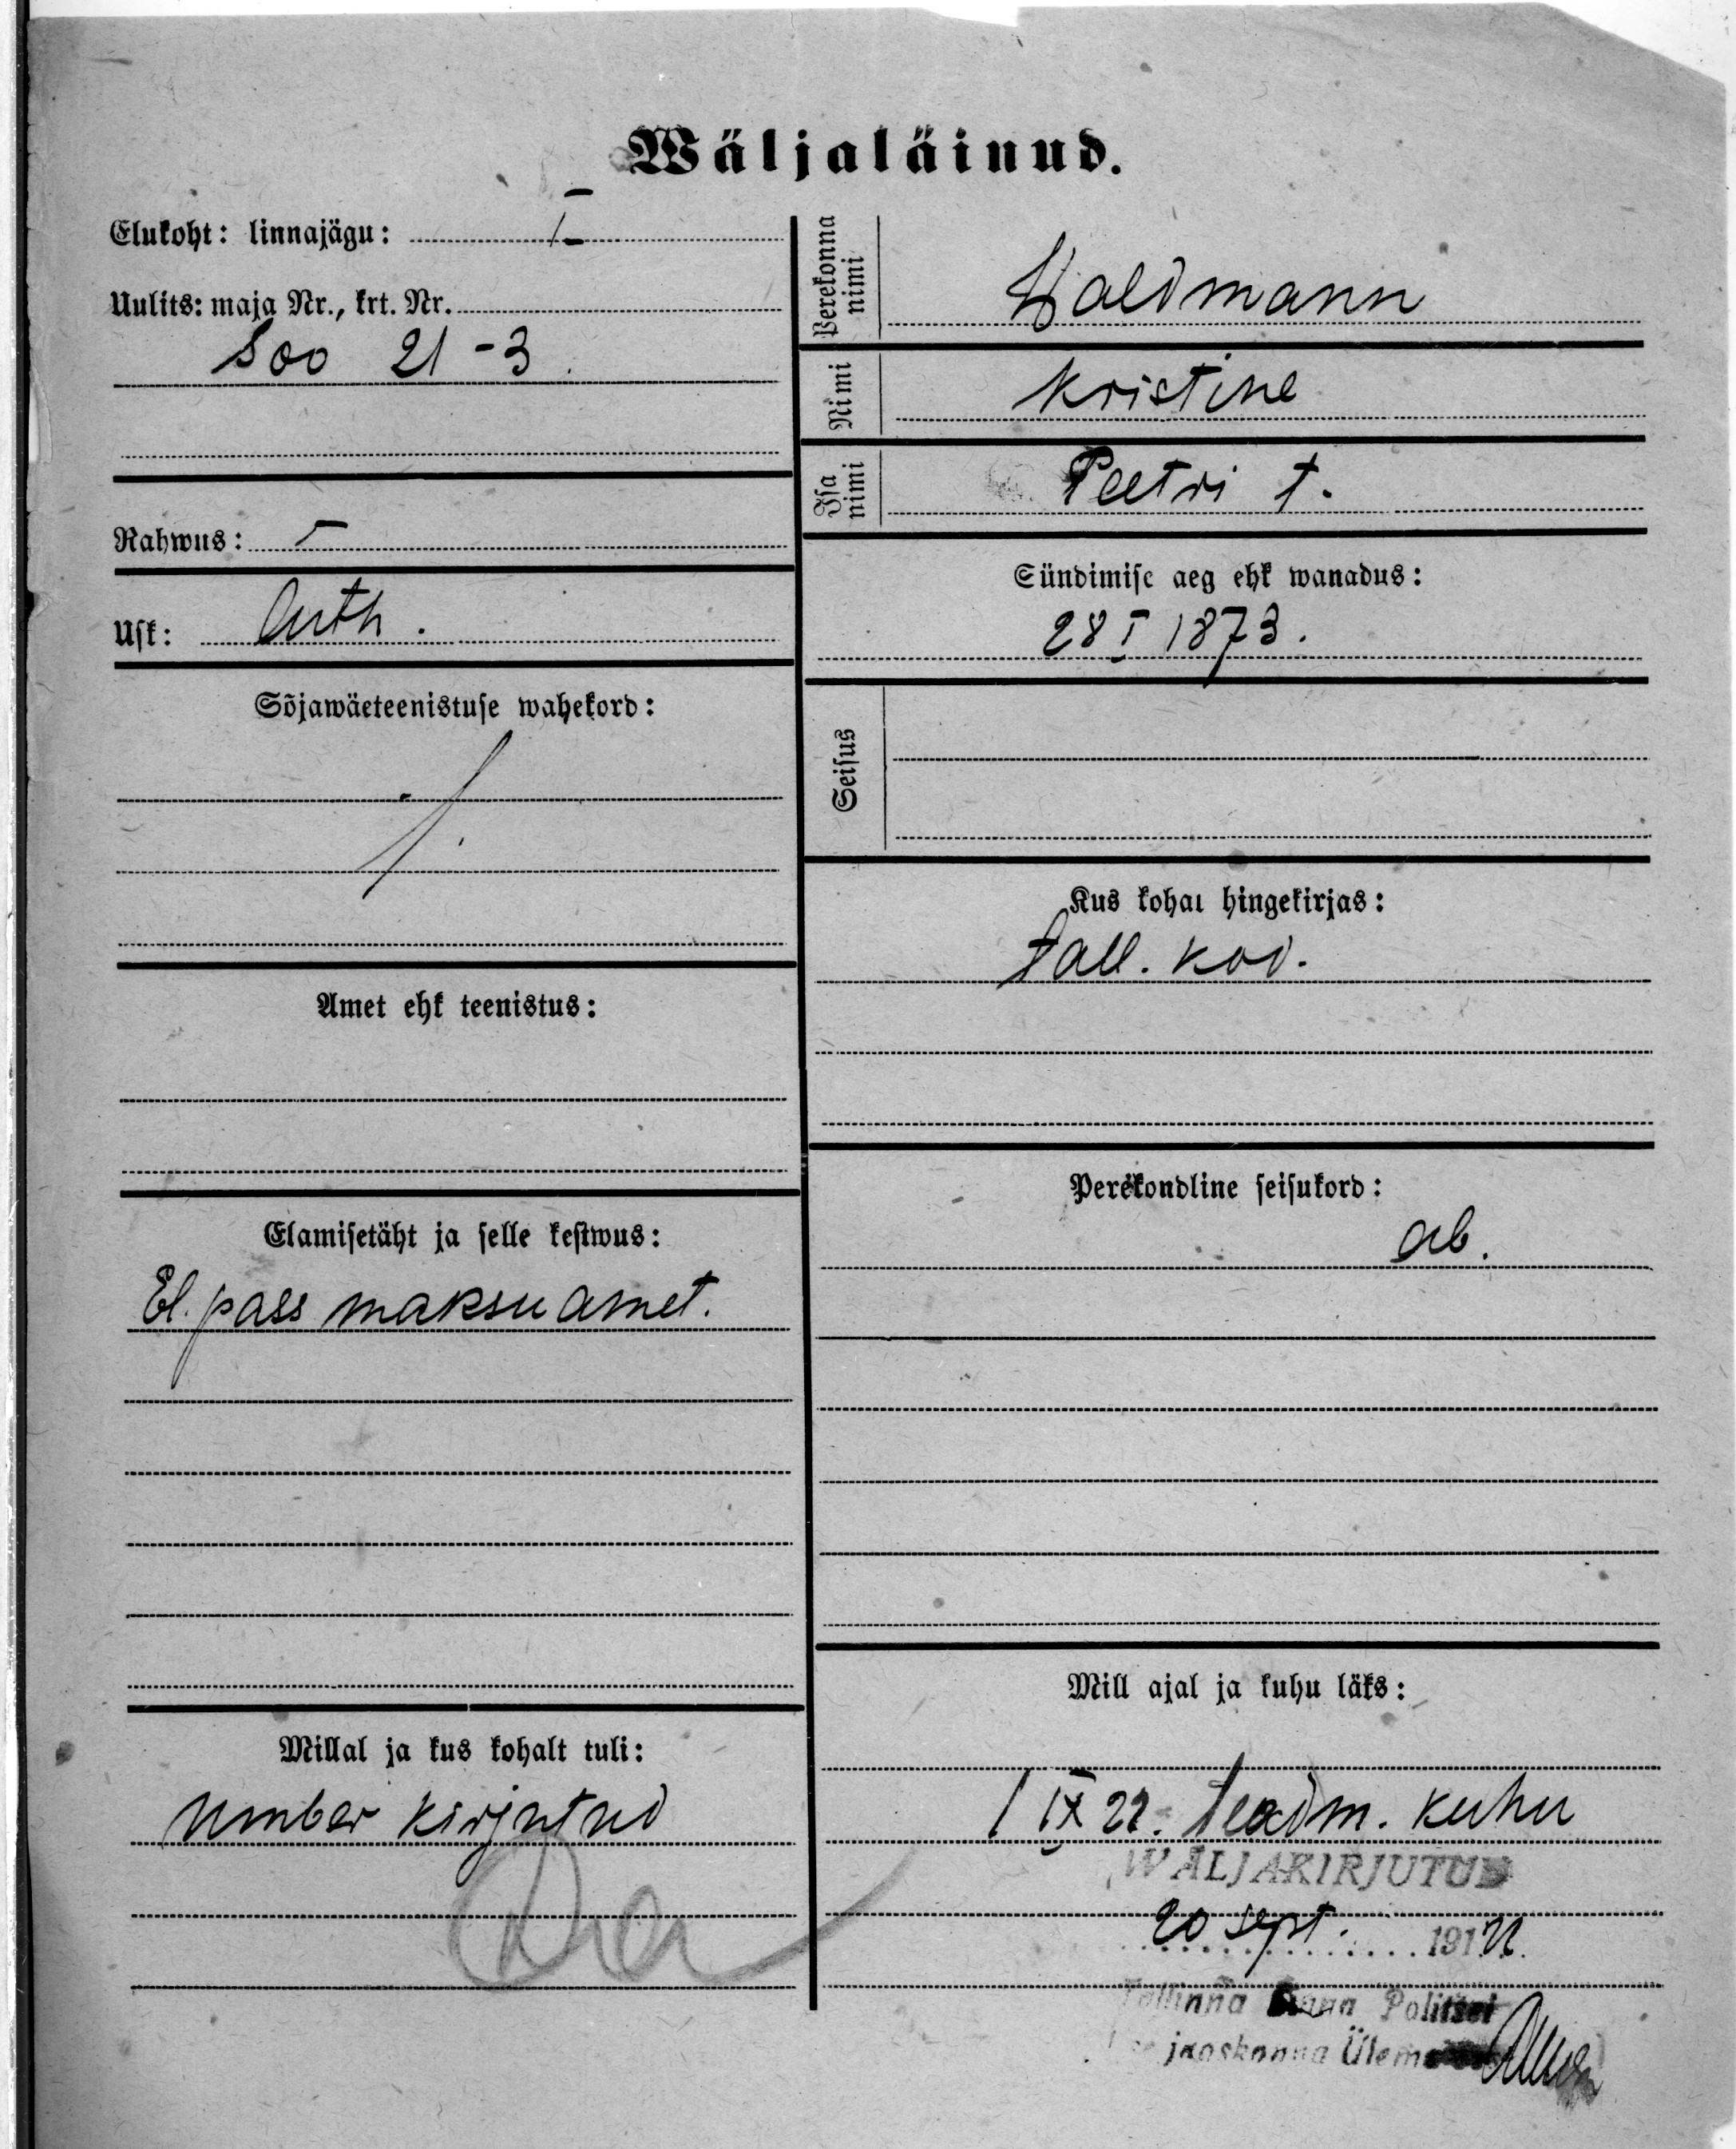 Wäljaläinud.
Elukoht: linnajägu: I
Uulits: maja Nr., krt. Nr.
Soo 21-3.
Rahwus:
Usk: luth.
Sõjawäeteenistuse wahekord:
Amet ehk teenistus:
Elamisetäht ja selle kestwus:
El. pass maksuamet.
Millal ja kus kohalt tuli:
umber kirjutud
Perekonna nimi
Waldmann
Nimi
Kristine
Isa nimi
Peetri t.
Sündimise aeg ehk wanadus:
28 I 1873.
Seisus
Kus kohal hingekirjas:
Tall. kod.
Perekondline seisukord:
ab.
Mill ajal ja kuhu läks:
1 IX 22. teadm. kuhu
WÄLJAKIRJUTUD
20 sept. 191 22.
Tallinna Linna Politsei
jaoskonna Ülem